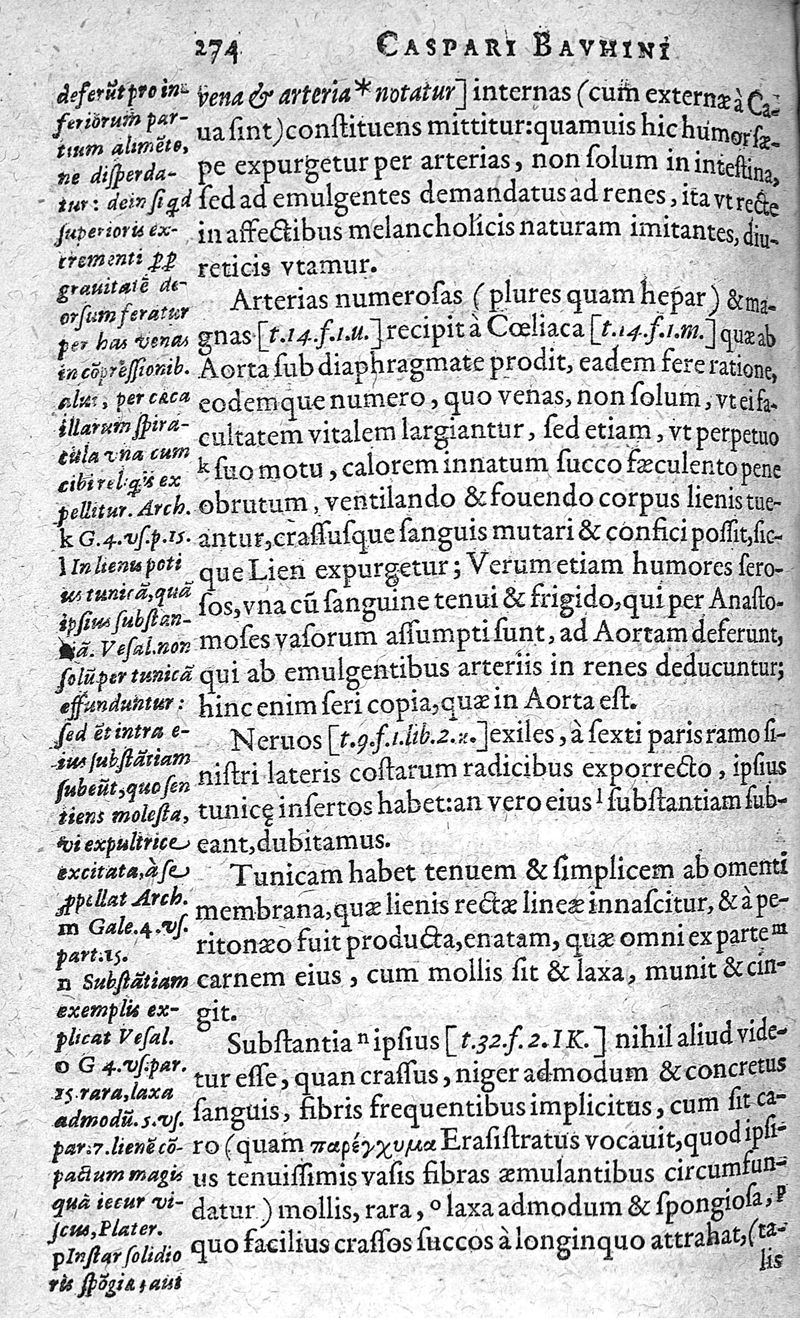 274 CASPARI BAVHINI
vena & arteria * notatur] internas (cum externæ à Ca-
ua ſint) conſtituens mittitur: quamuis hic humor ſæ-
pe expurgetur per arterias, non ſolum in inteſtina,
ſed ad emulgentes demandatus ad renes, ita vt recte
in affectibus melancholicis naturam imitantes, diu-
reticis vtamur.
Arterias numeroſas (plures quam hepar) & ma-
gnas [t.14.f.1.u.] recipit à Cœliaca [t.14.f.1.m.] quæ ab
Aorta ſub diaphragmate prodit, eadem fere ratione,
eodemque numero, quo venas, non ſolum, vt ei fa-
cultatem vitalem largiantur, ſed etiam, vt perpetuo
k ſuo motu, calorem innatum ſucco fæculento pene
obrutum, ventilando & fouendo corpus lienis tue-
antur, craſſuſque ſanguis mutari & confici poſſit, ſic-
que Lien expurgetur; Verum etiam humores ſero-
ſos, vna cū ſanguine tenui & frigido, qui per Anaſto-
moſes vaſorum aſſumpti ſunt, ad Aortam deferunt,
qui ab emulgentibus arteriis in renes deducuntur;
hinc enim ſeri copia, quæ in Aorta eſt.
Neruos [t.9.f.1.lib.2.z.] exiles, à ſexti paris ramo ſi-
niſtri lateris coſtarum radicibus exporrecto, ipſius
tunicę inſertos habet: an vero eius l ſubſtantiam ſub-
eant, dubitamus.
Tunicam habet tenuem & ſimplicem ab omenti
membrana, quæ lienis rectæ lineæ innaſcitur, & à pe-
ritonæo fuit producta, enatam, quæ omni ex parte m
carnem eius, cum mollis ſit & laxa, munit & cin-
git.
Subſtantia n ipſius [t.32.f.2.IK.] nihil aliud vide-
tur eſſe, quan craſſus, niger admodum & concretus
ſanguis, fibris frequentibus implicitus, cum ſit ca-
ro (quam παρέγχυμα Eraſiſtratus vocauit, quod ipſi-
us tenuiſſimis vaſis fibras æmulantibus circumfun-
datur) mollis, rara, o laxa admodum & ſpongioſa, p
quo facilius craſſos ſuccos à longinquo attrahat, (ta-
lis
deferūt pro in-
feriorum par-
tium alimēto,
ne diſperda-
tur: dein ſi qd
ſuperioris ex-
crementi pp
grauitatē de-
orſum feratur
per has venas
in cōpreſſionib.
alui, per cæca
illarum ſpira-
cula vna cum
cibi reliqis ex
pellitur. Arch.
k G.4.vſ.p.15.
l In lienis poti
us tunicā, quā
ipſius ſubſtan-
tiā. Veſal. non
ſolū per tunicā
effunduntur:
ſed et intra e-
ius ſubſtātiam
ſubeūt, quo ſen
tiens moleſta,
vi expultrice
excitata, à ſe
ppellat Arch.
m Gale.4.vſ.
part.15.
n Subſtātiam
exemplis ex-
plicat Veſal.
o G 4.vſ.par.
15. rara, laxa
admodū.5.vſ.
par.7. lienē cō-
pactum magis
quā iecur vi-
ſcus, Plater.
p Inſtar ſolidio
ris ſpōgiæ, aut